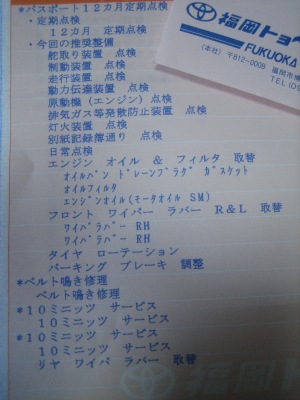 *パスポート12カ月定期点検
・定期点検
12カ月 定期点検
・今回の推奨整備
舵取り装置 点検
制動装置 点検
走行装置 点検
動力伝達装置 点検
原動機(エンジン)点検
排気ガス等発散防止装置 点検
灯火装置 点検
別紙記録簿通り 点検
日常点検
エンジン オイル & フィルタ 取替
オイルパン ドレーンプラグ ガスケット
オイルフィルタ
エンジンオイル(モータオイル SM)
フロント ワイパー ラバー R&L 取替
ワイパラバー RH
ワイパラバー RH
タイヤ ローテーション
パーキング ブレーキ 調整
*ベルト鳴き修理
ベルト鳴き修理
*10ミニッツ サービス
10ミニッツ サービス
*10ミニッツ サービス
10ミニッツ サービス
リヤ ワイパ ラバー 取替
福岡トヨ
FUKUOKA
(本社) 〒812-0008 福岡市博
TEL
福岡